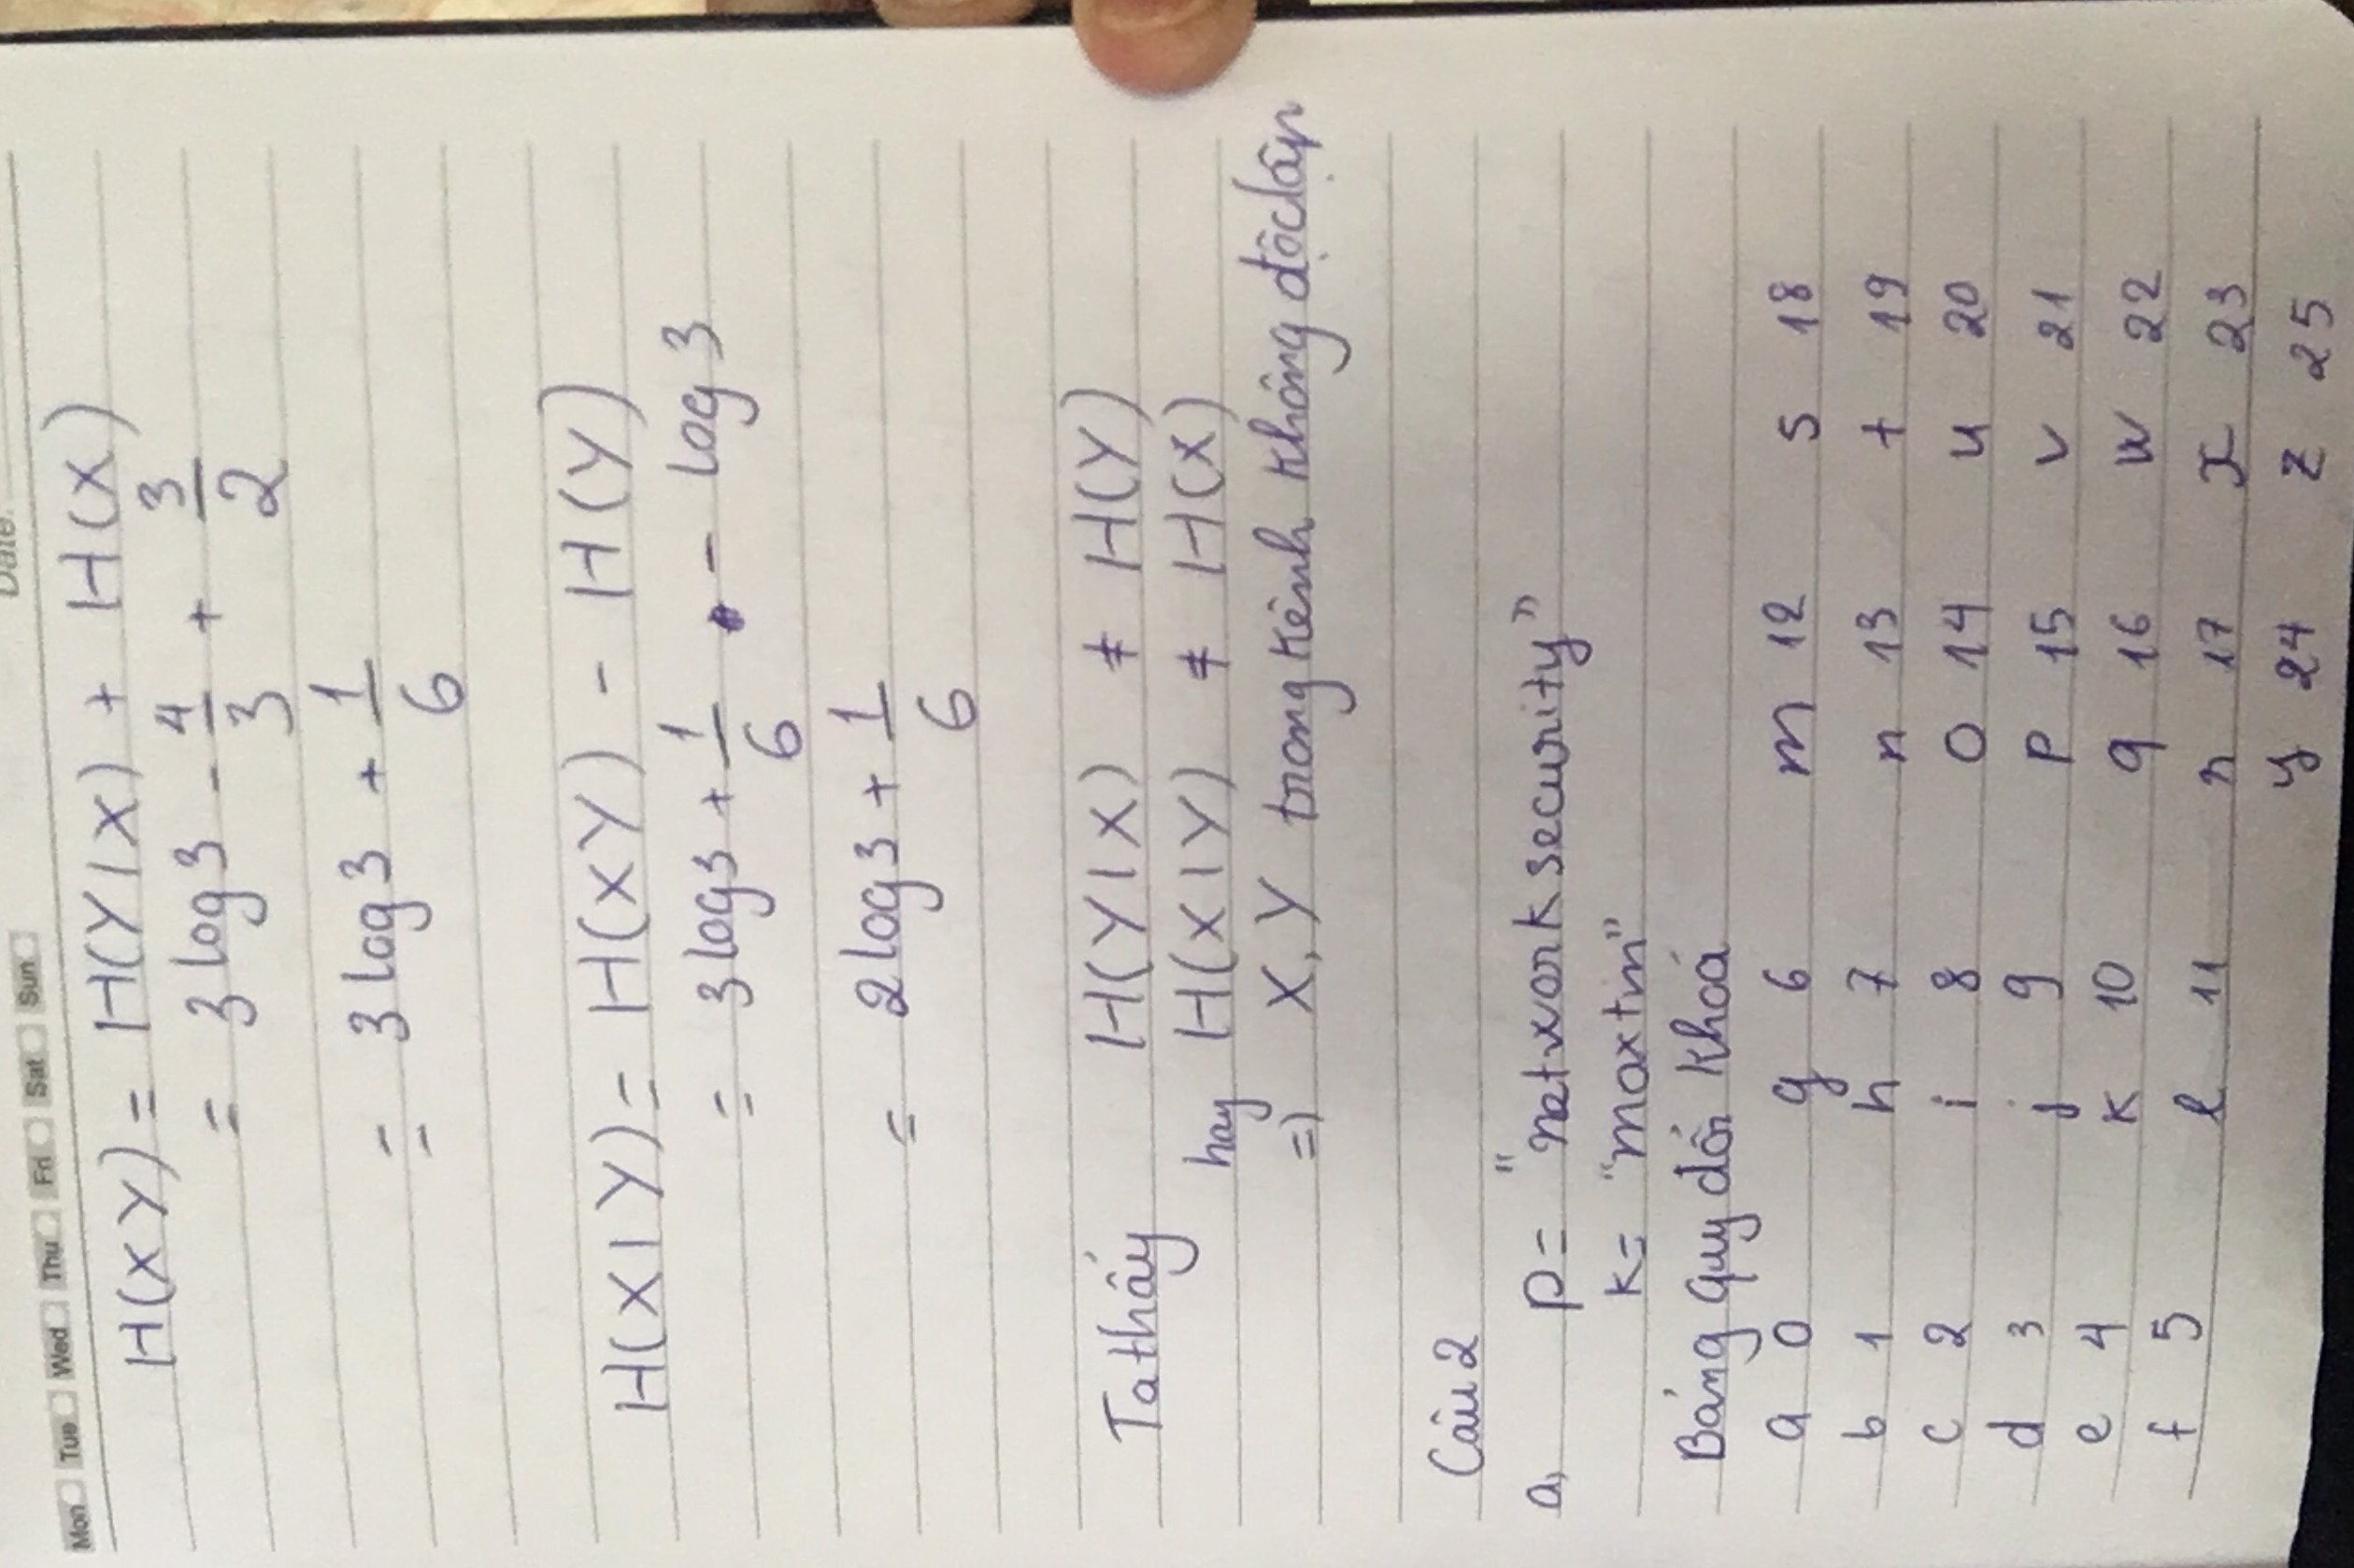 Date.
Mon Tue Wed Thu Fri Sat Sun
H(XY) = H(Y|X) + H(X)
= 3 log 3 - 4/3 + 3/2
= 3 log 3 + 1/6
H(X|Y) = H(XY) - H(Y)
= 3 log 3 + 1/6 - log 3
= 2 log 3 + 1/6
Ta thấy H(Y|X) ≠ H(Y)
hay H(X|Y) ≠ H(X)
=> X, Y trong kênh không độc lập
Câu 2
a, p = "network security"
k = "maxtm"
Bảng quy đổi khoá
a 0 g 6 m 12 s 18
b 1 h 7 n 13 t 19
c 2 i 8 o 14 u 20
d 3 j 9 p 15 v 21
e 4 k 10 q 16 w 22
f 5 l 11 r 17 x 23
y 24 z 25